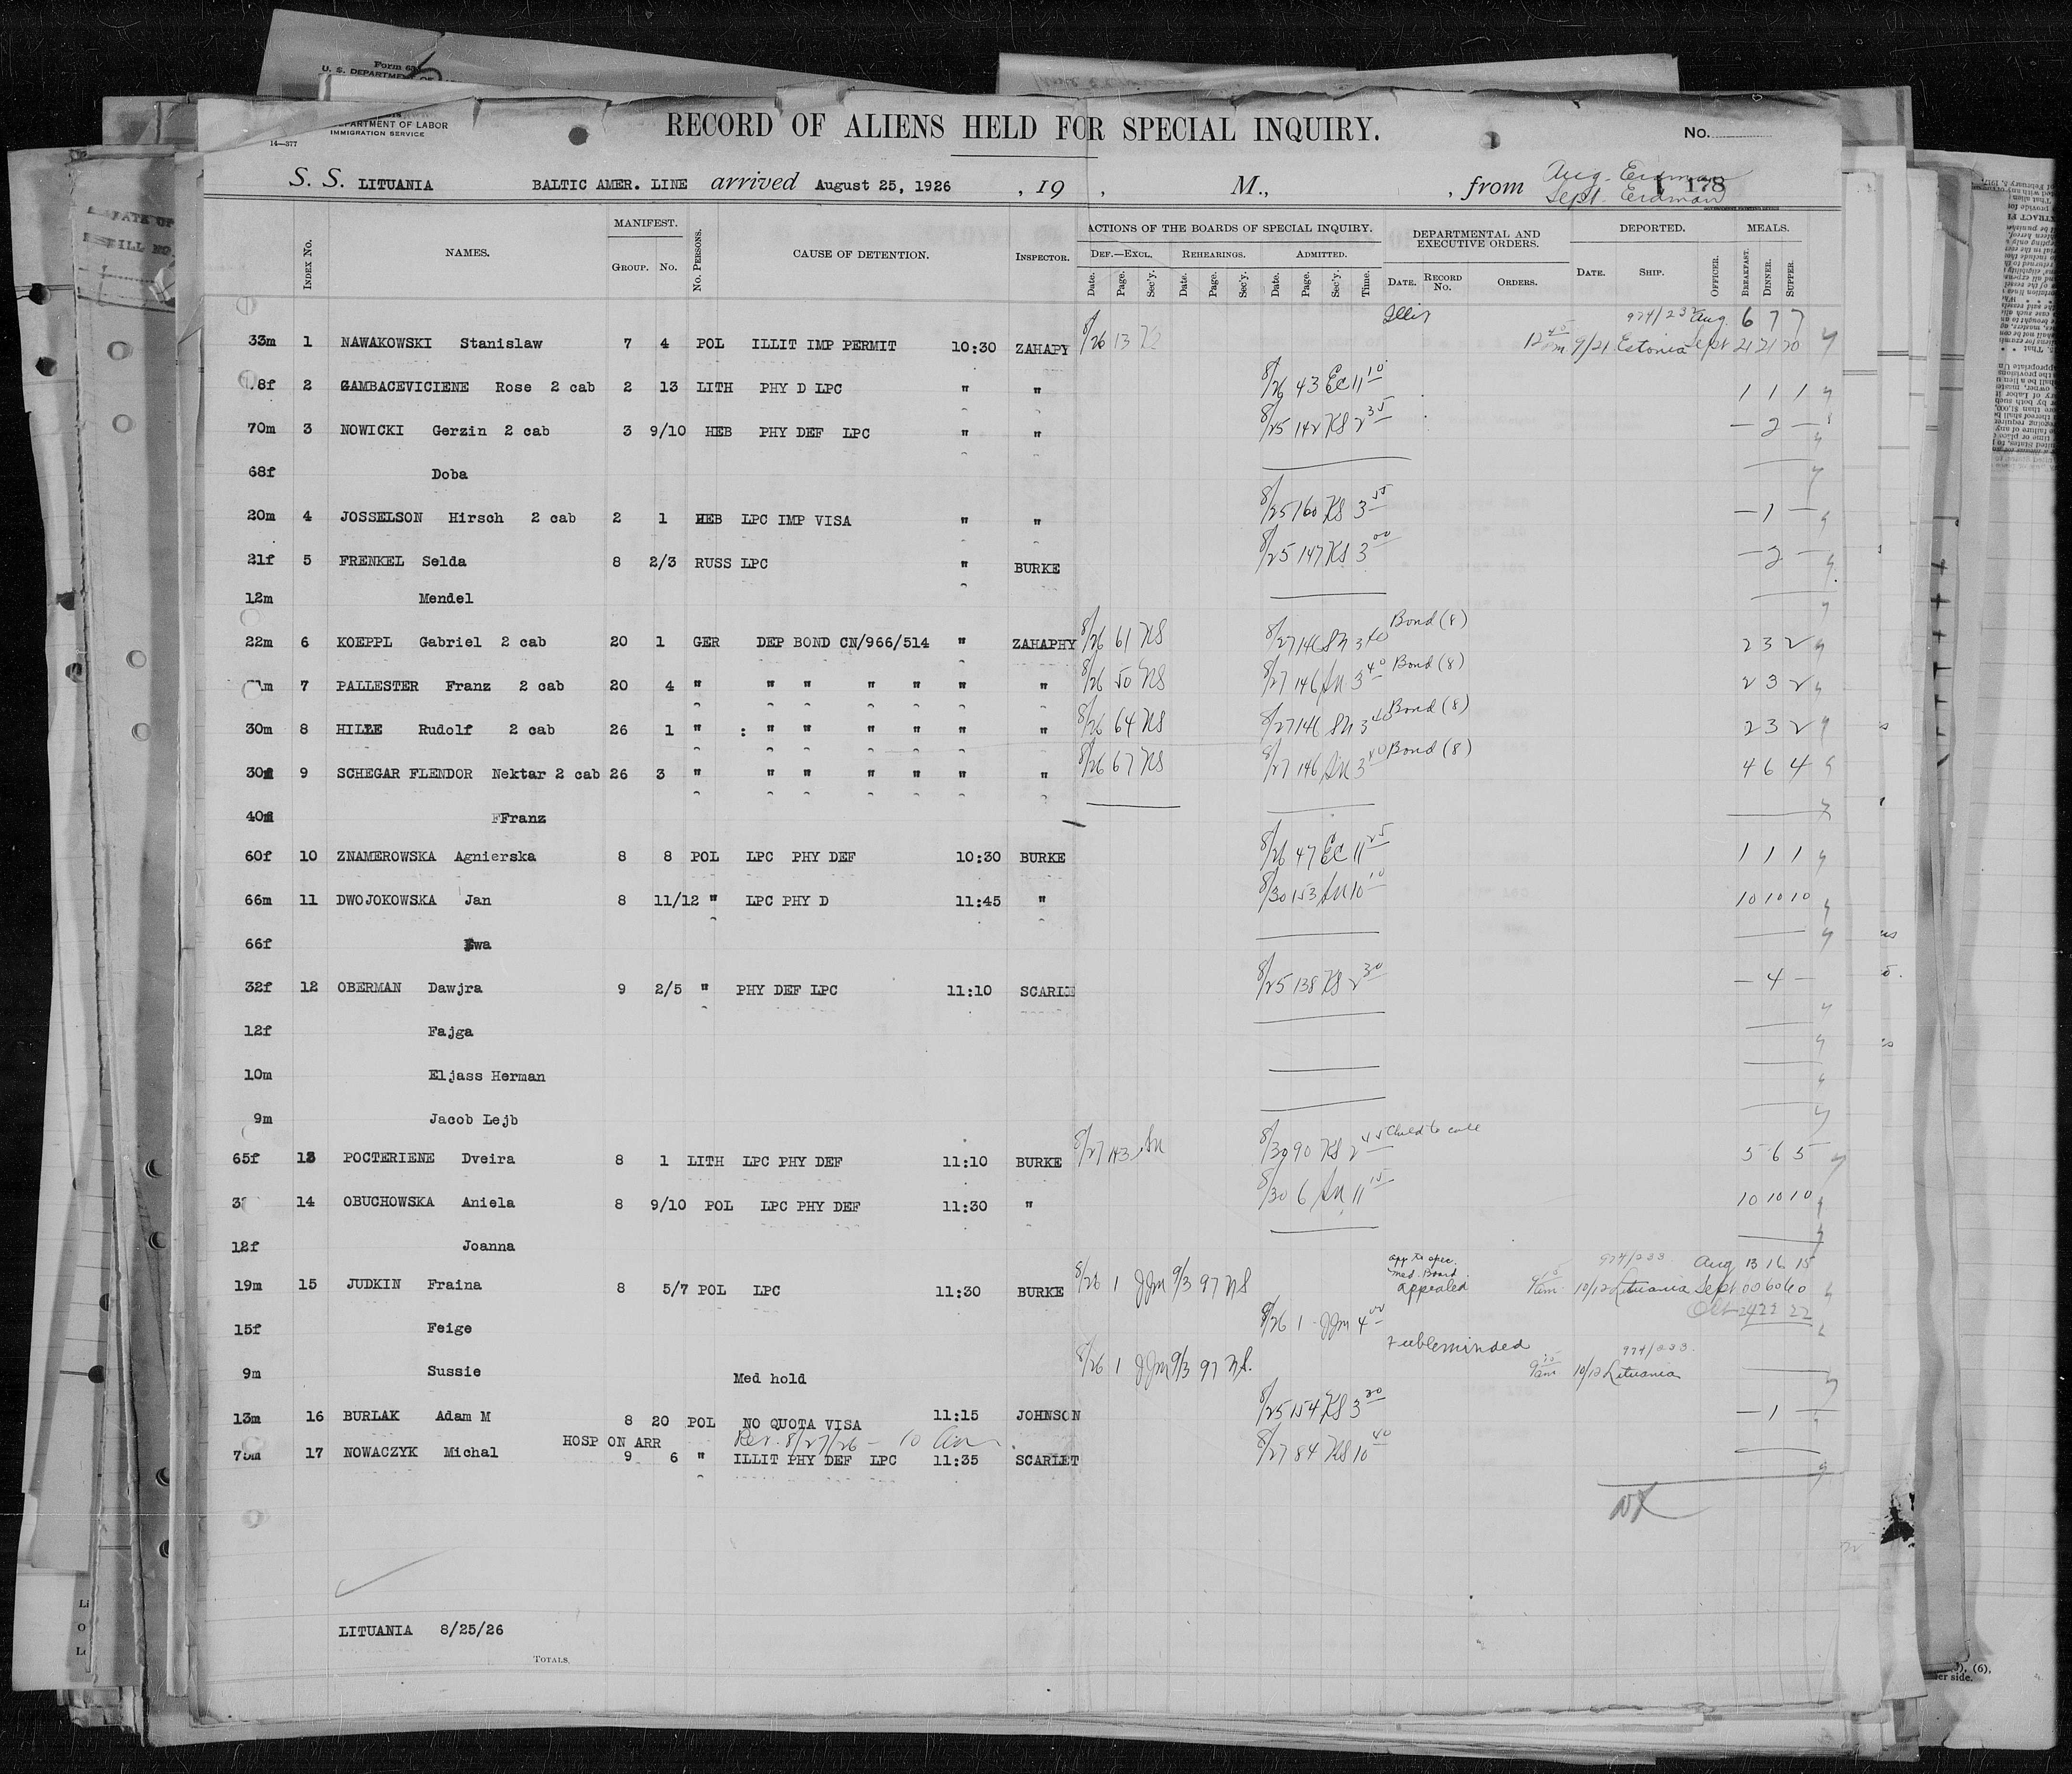 Form 63
U. S. DEPARTMENT OF
DEPARTMENT OF LABOR
IMMIGRATION SERVICE
14—377
RECORD OF ALIENS HELD FOR SPECIAL INQUIRY.
No.
S. S. LITUANIA BALTIC AMER. LINE arrived August 25, 1926 , 19 , M., , from Aug. Erdman 178
Sept. Erdman
Index No. NAMES. MANIFEST. Group. No. No. Persons. CAUSE OF DETENTION. Inspector. ACTIONS OF THE BOARDS OF SPECIAL INQUIRY. DEPARTMENTAL AND EXECUTIVE ORDERS. DEPORTED. MEALS.
Def.—Excl. Rehearings. Admitted. Date. Record No. Orders. Date. Ship. Officer. Breakfast. Dinner. Supper.
Date. Page. Sec'y. Date. Page. Sec'y. Date. Page. Sec'y. Time.
974/232 Aug. 6 7 7
33m 1 NAWAKOWSKI Stanislaw 7 4 POL ILLIT IMP PERMIT 10:30 ZAHAPY 8/26 13 9/21 Estonia Sept 21 21 20
8f 2 GAMBACEVICIENE Rose 2 cab 2 13 LITH PHY D LPC " " 8/26 43 EC 11 10 1 1 1
70m 3 NOWICKI Gerzin 2 cab 3 9/10 HEB PHY DEF LPC " " 8/25 142 KS 2 35 — 2 —
68f Doba
20m 4 JOSSELSON Hirsch 2 cab 2 1 HEB LPC IMP VISA " " 8/25 160 KS 3 55 — 1 —
21f 5 FRENKEL Selda 8 2/3 RUSS LPC " BURKE 8/25 147 KS 3 00 — 2 —
12m Mendel
22m 6 KOEPPL Gabriel 2 cab 20 1 GER DEP BOND CN/966/514 " ZAHAPHY 8/26 61 NS 8/27 146 SN 3 40 Bond (8) 2 3 2
m 7 PALLESTER Franz 2 cab 20 4 " " " " " " " 8/26 50 NS 8/27 146 SN 3 40 Bond (8) 2 3 2
30m 8 HILLE Rudolf 2 cab 26 1 " : " " " " " " 8/26 64 NS 8/27 146 SN 3 40 Bond (8) 2 3 2
30m 9 SCHEGAR FLENDOR Nektar 2 cab 26 3 " " " " " " " 8/26 67 NS 8/27 146 SN 3 40 Bond (8) 4 6 4
40m FFranz
60f 10 ZNAMEROWSKA Agnierska 8 8 POL LPC PHY DEF 10:30 BURKE 8/26 47 EC 11 25 1 1 1
66m 11 DWOJOKOWSKA Jan 8 11/12 " LPC PHY D 11:45 " 8/30 153 SN 10 10 10 10 10
66f Ewa
32f 12 OBERMAN Dawjra 9 2/5 " PHY DEF LPC 11:10 SCARLE 8/25 138 KS 2 30 — 4 —
12f Fajga
10m Eljass Herman
9m Jacob Lejb
65f 13 POCTERIENE Dveira 8 1 LITH LPC PHY DEF 11:10 BURKE 8/27 143 SN 8/30 90 KS 2 45 Child to call 5 6 5
3 14 OBUCHOWSKA Aniela 8 9/10 POL LPC PHY DEF 11:30 " 8/30 6 SN 11 15 10 10 10
12f Joanna
app to spec. med. Board 974/233 Aug 13 16 15
19m 15 JUDKIN Fraina 8 5/7 POL LPC 11:30 BURKE 8/26 1 JJm 9/3 97 NS appealed 10/12 Lituania Sept 60 60 60
Oct 24 22 22
15f Feige 8/26 1 JJm 4 00
9m Sussie 8/26 1 JJm 9/3 97 NS. Feebleminded 974/233. 9 15 am 10/12 Lituania
Med hold
13m 16 BURLAK Adam M 8 20 POL NO QUOTA VISA 11:15 JOHNSON 8/25 154 KS 3 30 — 1 —
HOSP ON ARR Rev. 8/27/26 — 10 am
75m 17 NOWACZYK Michal 9 6 " ILLIT PHY DEF LPC 11:35 SCARLET 8/27 84 KS 10 40
LITUANIA 8/25/26
Totals.